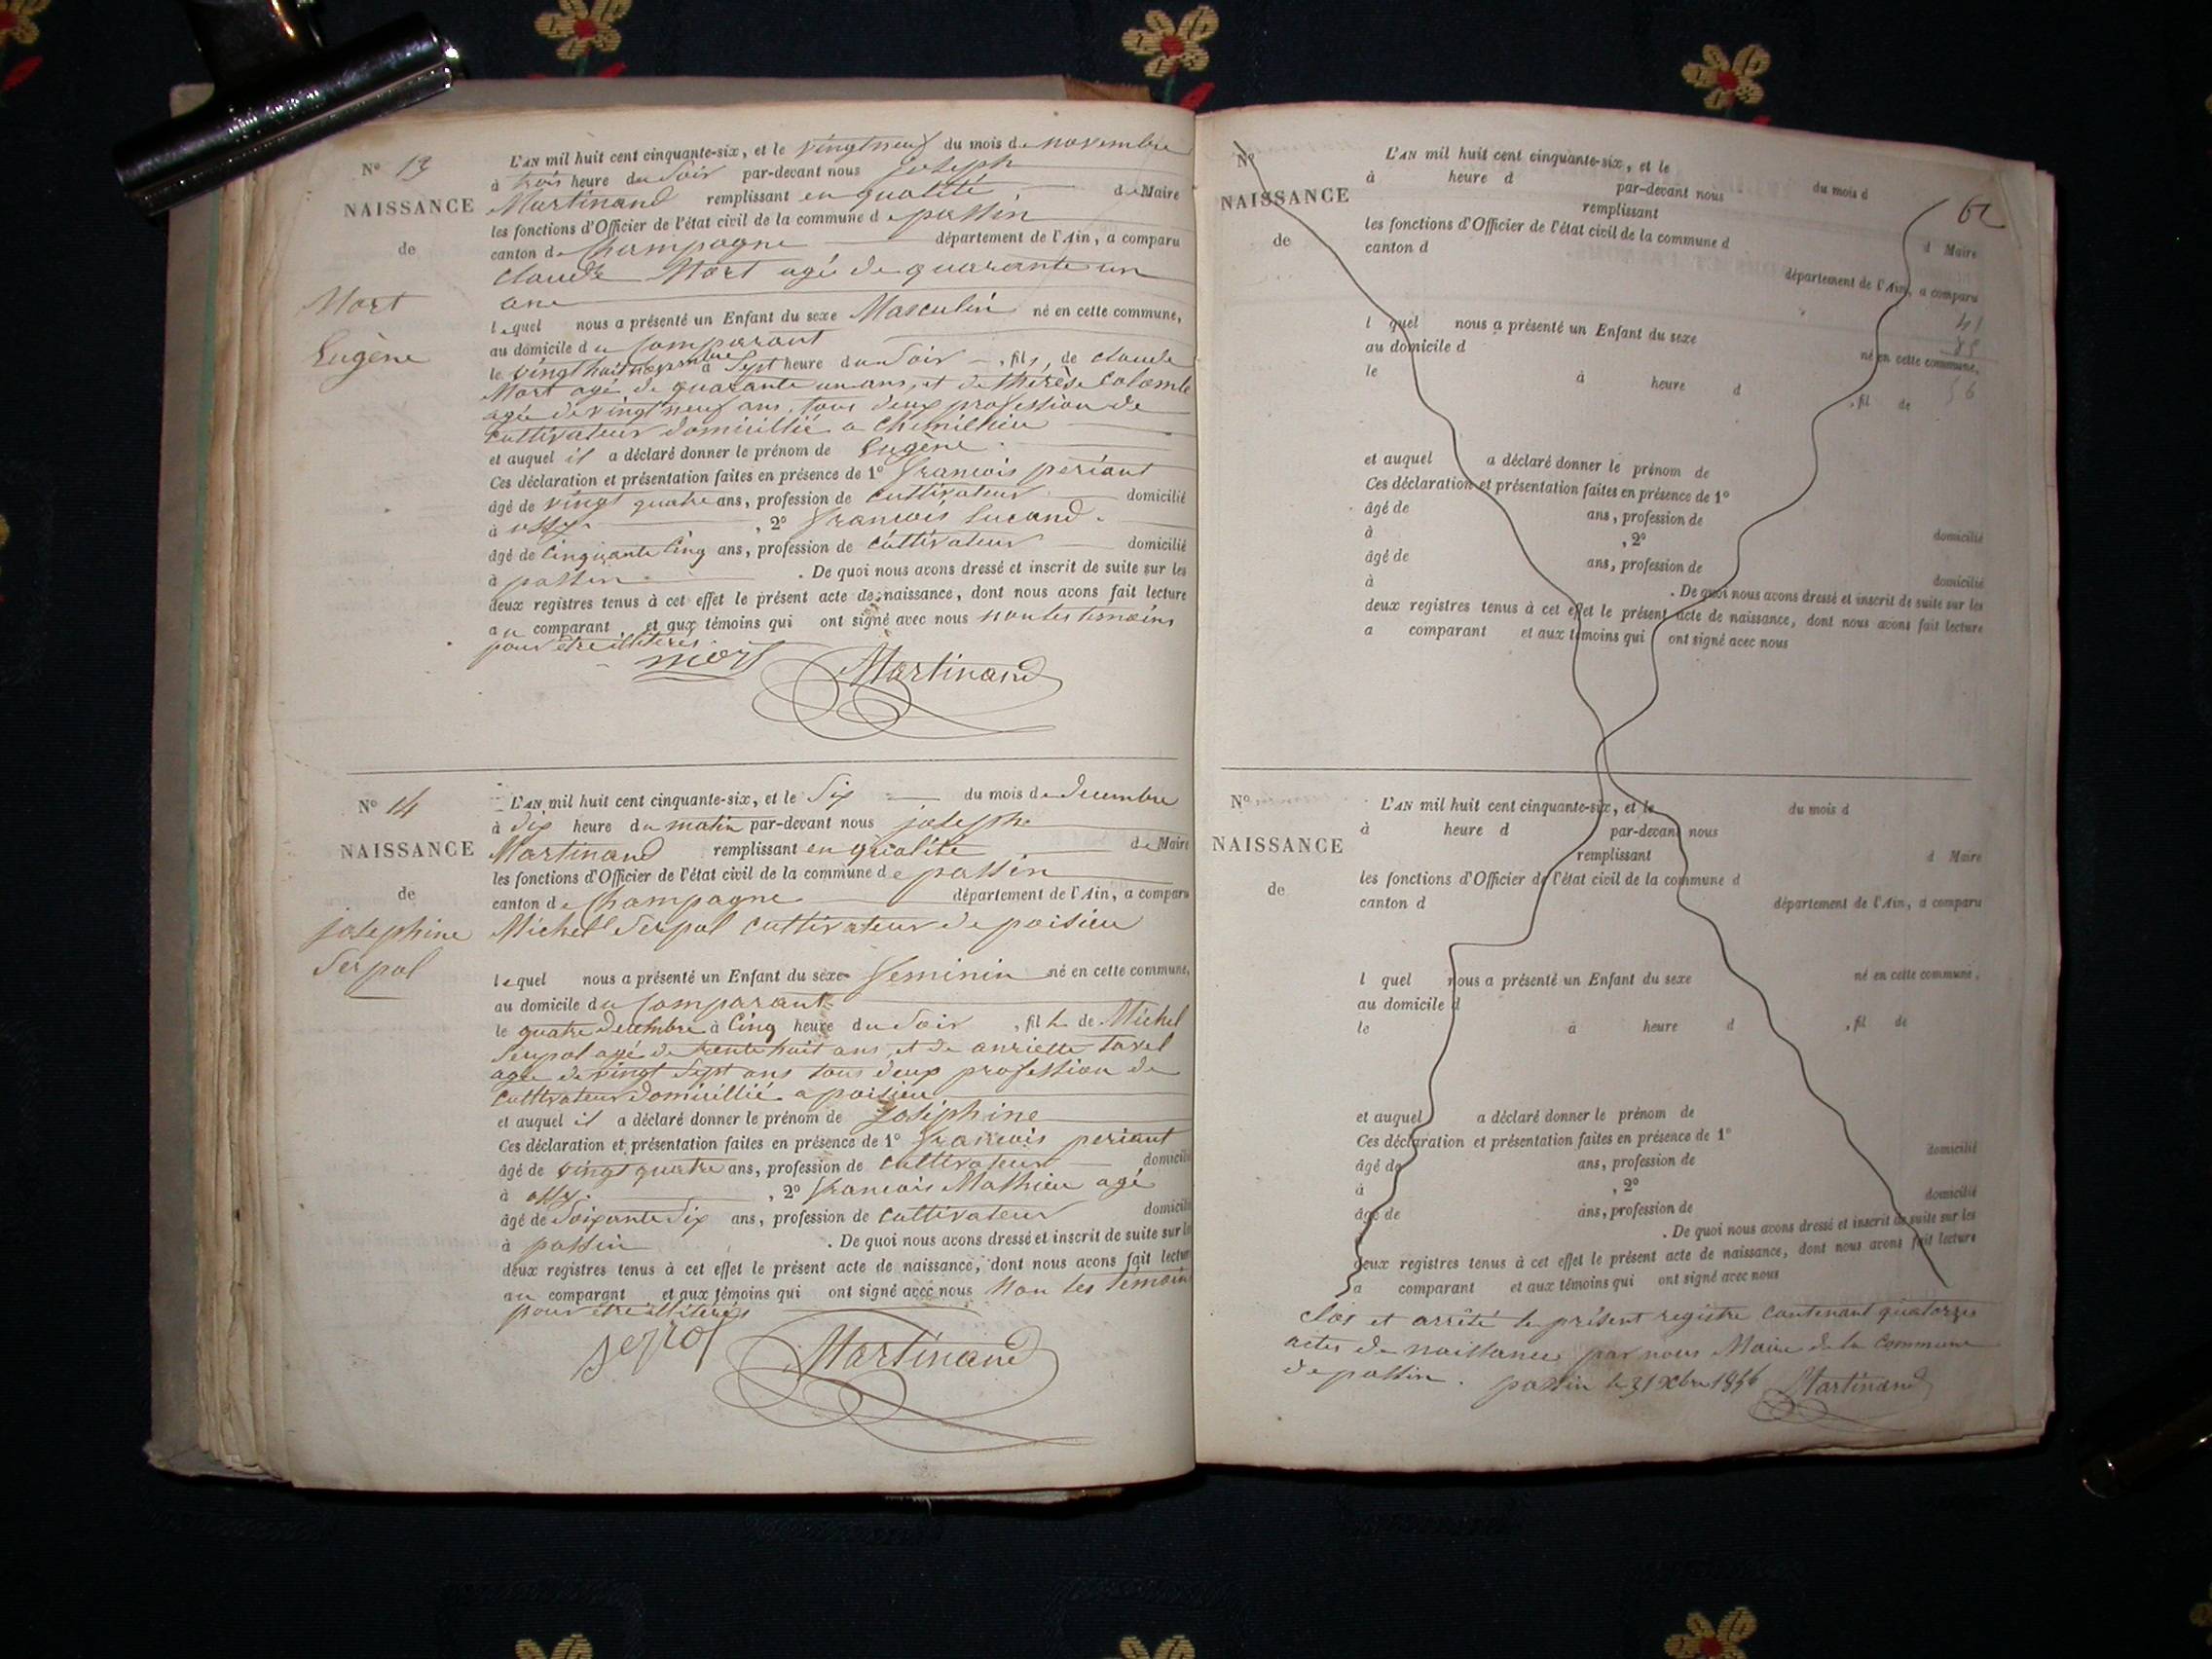 N° 13
NAISSANCE
de
Mort
Eugène
L'AN mil huit cent cinquante-six, et le vingt neuf du mois de novembre
à trois heure du Soir par-devant nous joseph
Martinand remplissant en qualité de Maire
les fonctions d'Officier de l'état civil de la commune de passin
canton de Champagne département de l'Ain, a comparu
claude Mort agé de quarante un
ans
lequel nous a présenté un Enfant du sexe Masculin né en cette commune,
au domicile du Comparant
le vingt huit novembre à Sept heure du Soir , fils de claude
Mort agé de quarante un ans, et de thérèse Colomb
agée de vingt neuf ans, tous deux profession de
cultivateur domicillié a Chemillieu
et auquel il a déclaré donner le prénom de Eugène
Ces déclaration et présentation faites en présence de 1° francois periant
âgé de vingt quatre ans, profession de cultivateur domicilié
à ossy , 2° francois Lucand
âgé de Cinquante Cinq ans, profession de cultivateur domicilié
à passin . De quoi nous avons dressé et inscrit de suite sur les
deux registres tenus à cet effet le présent acte de naissance, dont nous avons fait lecture
au comparant et aux témoins qui ont signé avec nous non les temoins
pour être illiterés
mort Martinand
N° 14
NAISSANCE
de
josephine
Serpol
L'AN mil huit cent cinquante-six, et le Six du mois de decembre
à dix heure du matin par-devant nous josephe
Martinand remplissant en qualité de Maire
les fonctions d'Officier de l'état civil de la commune de passin
canton de Champagne département de l'Ain, a comparu
Michel Serpol cultivateur de poisieu
lequel nous a présenté un Enfant du sexe feminin né en cette commune,
au domicile du Comparant
le quatre decembre à Cinq heure du Soir , fille de Michel
Serpol agé de trente huit ans, et de anriette tavel
agée de vingt Sept ans tous deux profession de
cultivateur domicillié a poisieu
et auquel il a déclaré donner le prénom de joséphine
Ces déclaration et présentation faites en présence de 1° francois periant
âgé de vingt quatre ans, profession de cultivateur domicilié
à ossy. , 2° francois Mathieu agé
âgé de Soixante Six ans, profession de cultivateur domicilié
à passin . De quoi nous avons dressé et inscrit de suite sur les
deux registres tenus à cet effet le présent acte de naissance, dont nous avons fait lecture
au comparant et aux témoins qui ont signé avec nous Non les témoins
pour être illiterés
serpol Martinand
62
N°
NAISSANCE
de
L'AN mil huit cent cinquante-six, et le du mois d
à heure d par-devant nous
remplissant d Maire
les fonctions d'Officier de l'état civil de la commune d
canton d département de l'Ain, a comparu
41
l quel nous a présenté un Enfant du sexe né en cette commune,
au domicile d
le à heure d , fil de
et auquel a déclaré donner le prénom de
Ces déclaration et présentation faites en présence de 1°
âgé de ans, profession de domicilié
à , 2°
âgé de ans, profession de domicilié
à . De quoi nous avons dressé et inscrit de suite sur les
deux registres tenus à cet effet le présent acte de naissance, dont nous avons fait lecture
a comparant et aux témoins qui ont signé avec nous
N°
NAISSANCE
de
L'AN mil huit cent cinquante-six, et le du mois d
à heure d par-devant nous
remplissant d Maire
les fonctions d'Officier de l'état civil de la commune d
canton d département de l'Ain, a comparu
l quel nous a présenté un Enfant du sexe né en cette commune,
au domicile d
le à heure d , fil de
et auquel a déclaré donner le prénom de
Ces déclaration et présentation faites en présence de 1°
âgé de ans, profession de domicilié
à , 2°
âgé de ans, profession de domicilié
à . De quoi nous avons dressé et inscrit de suite sur les
deux registres tenus à cet effet le présent acte de naissance, dont nous avons fait lecture
a comparant et aux témoins qui ont signé avec nous
Clos et arrêté le présent registre Contenant quatorze
actes de naissances par nous Maire de la Commune
de passin. passin le 31 Xbre 1856 Martinand